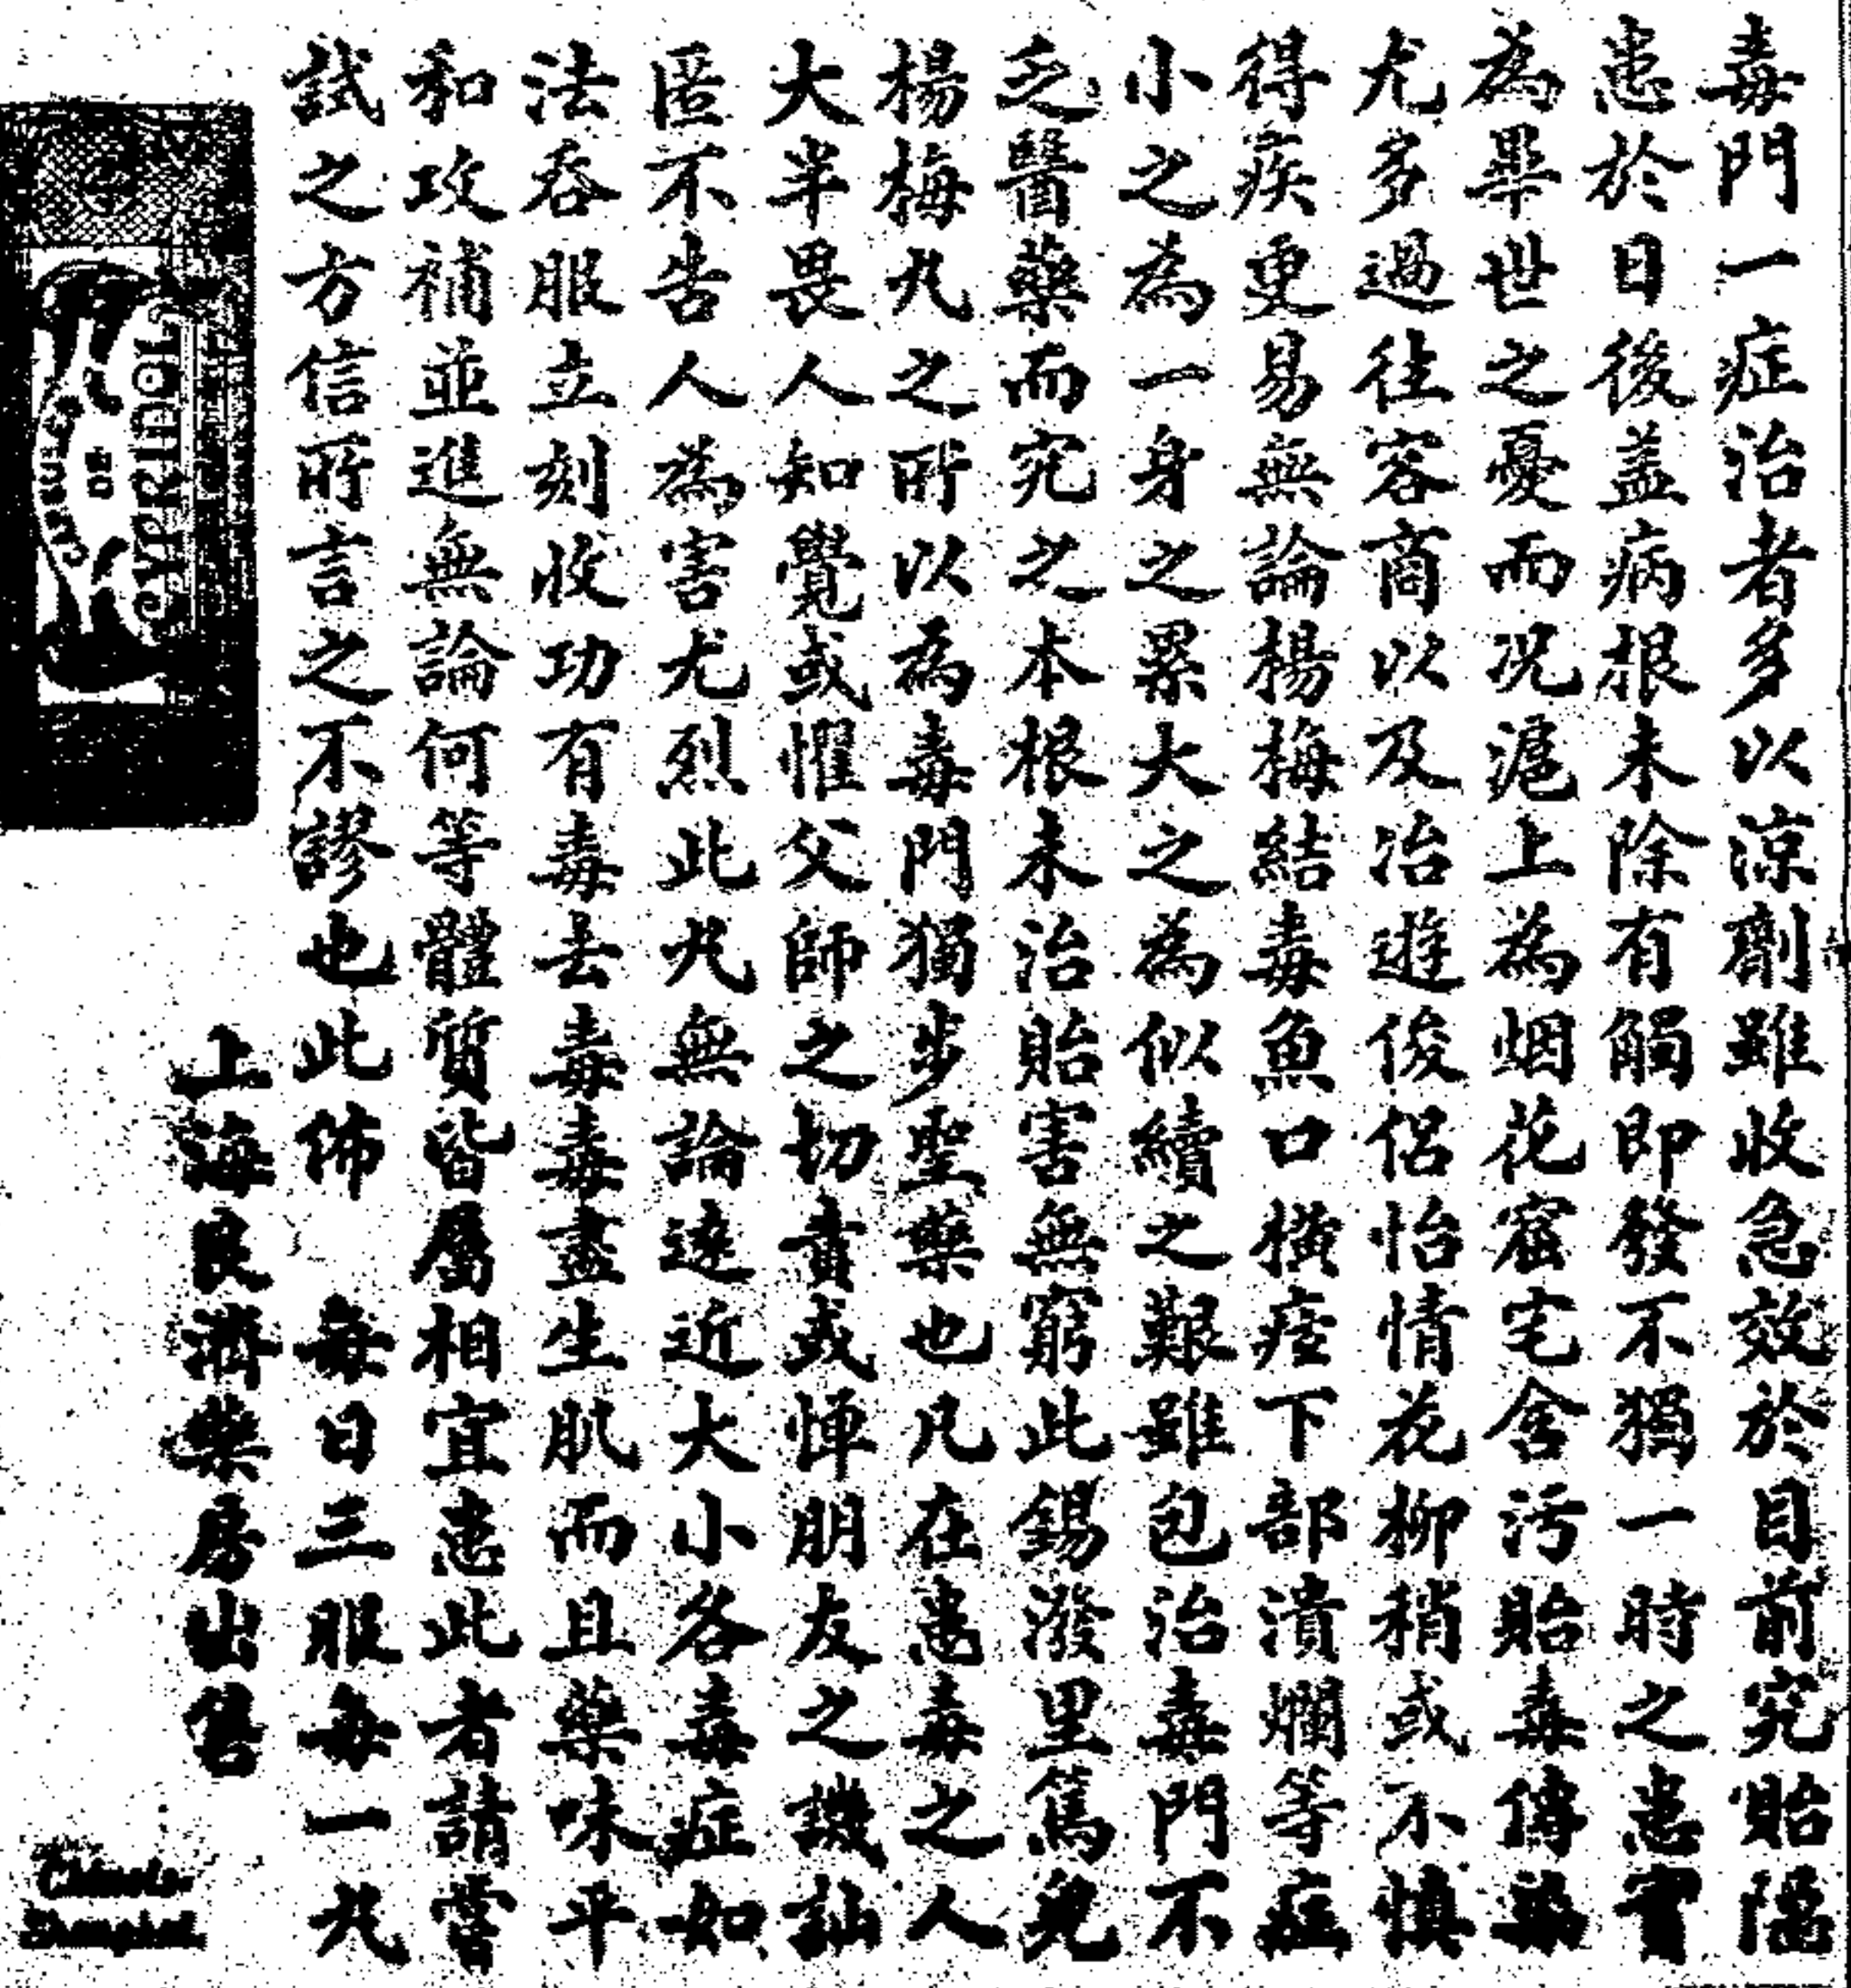 毒門一症治者多以涼劑雖收急效於目前究貽隱
患於日後盖病根未除有觸即發不獨一時之患實
為畢世之憂而况滬上為烟花窟宅含污貽毒傳染
尤多過往客商以及冶遊俊侶怡情花柳稍或不慎
得疾更易無論楊梅結毒魚口横痃下部潰爛等症
小之為一身之累大之為似續之艱雖包治毒門不
乏醫藥而究之本根未治貽害無窮此錫潑里篤兒
楊梅丸之所以為毒門獨步聖藥也凡在患毒之人
大半畏人知覺或懼父師之切責或憚朋友之譏訕
匿不告人為害尤烈此丸無論遠近大小各毒症如
法吞服立刻收功有毒去毒毒盡生肌而且藥味平
和攻補並進無論何等體質皆屬相宜患此者請嘗
試之方信所言之不謬也此佈 每日三服每一丸
上海良濟藥房出售
CYPRIDOL